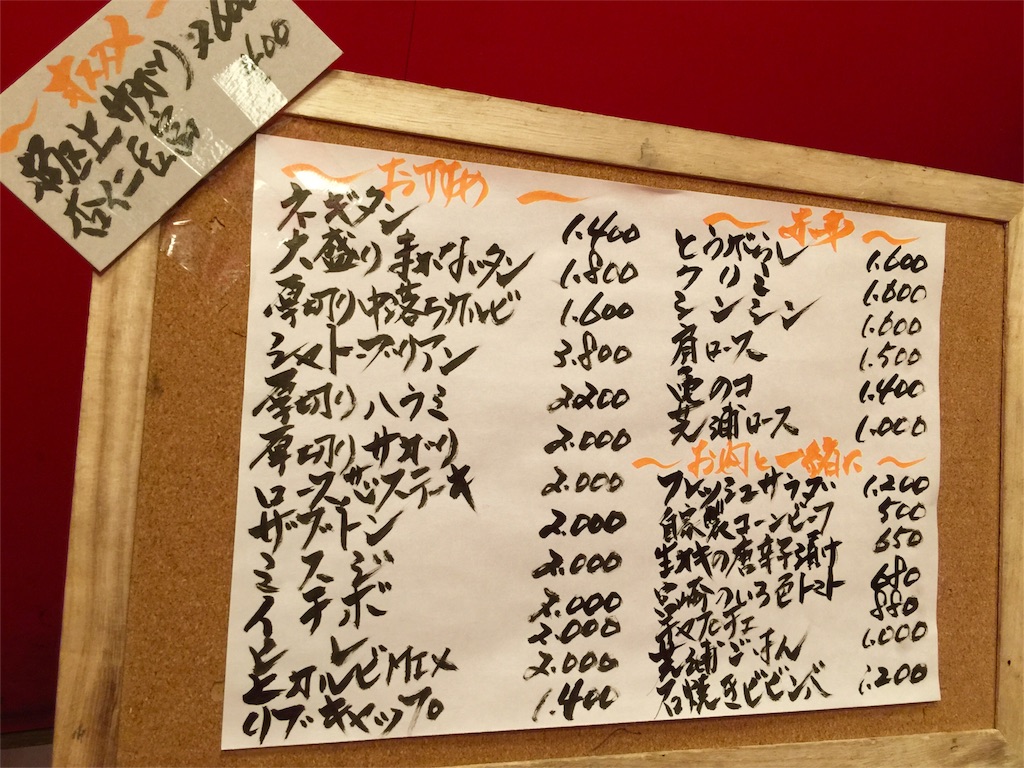 〜オススメ〜
極上サガリ ¥2600
杏仁豆腐 600
〜おすすめ〜
ネギタン 1.400
大盛りまかないタン 1.800
厚切り中落ちカルビ 1.600
シャトーブリアン 3.800
厚切りハラミ 2.200
厚切りサガリ 2.000
ロース芯ステーキ 2.000
ザブトン 2.000
ミスジ 2.000
イチボ 2.000
ヒレ 2.000
上カルビMIX 2.000
リブキャップ 1.400
〜赤身〜
とうがらし 1.600
クリミ 1.600
シンシン 1.600
肩ロース 1.500
亀のコ 1.400
芝浦ロース 1.000
〜お肉と一緒に〜
フレッシュサラダ 1.200
自家製コーンビーフ 500
生ホヤの唐辛子漬け 650
宮崎のいろ色トマト 680
880
芝浦ごはん 1.000
石焼きビビンバ 1.200